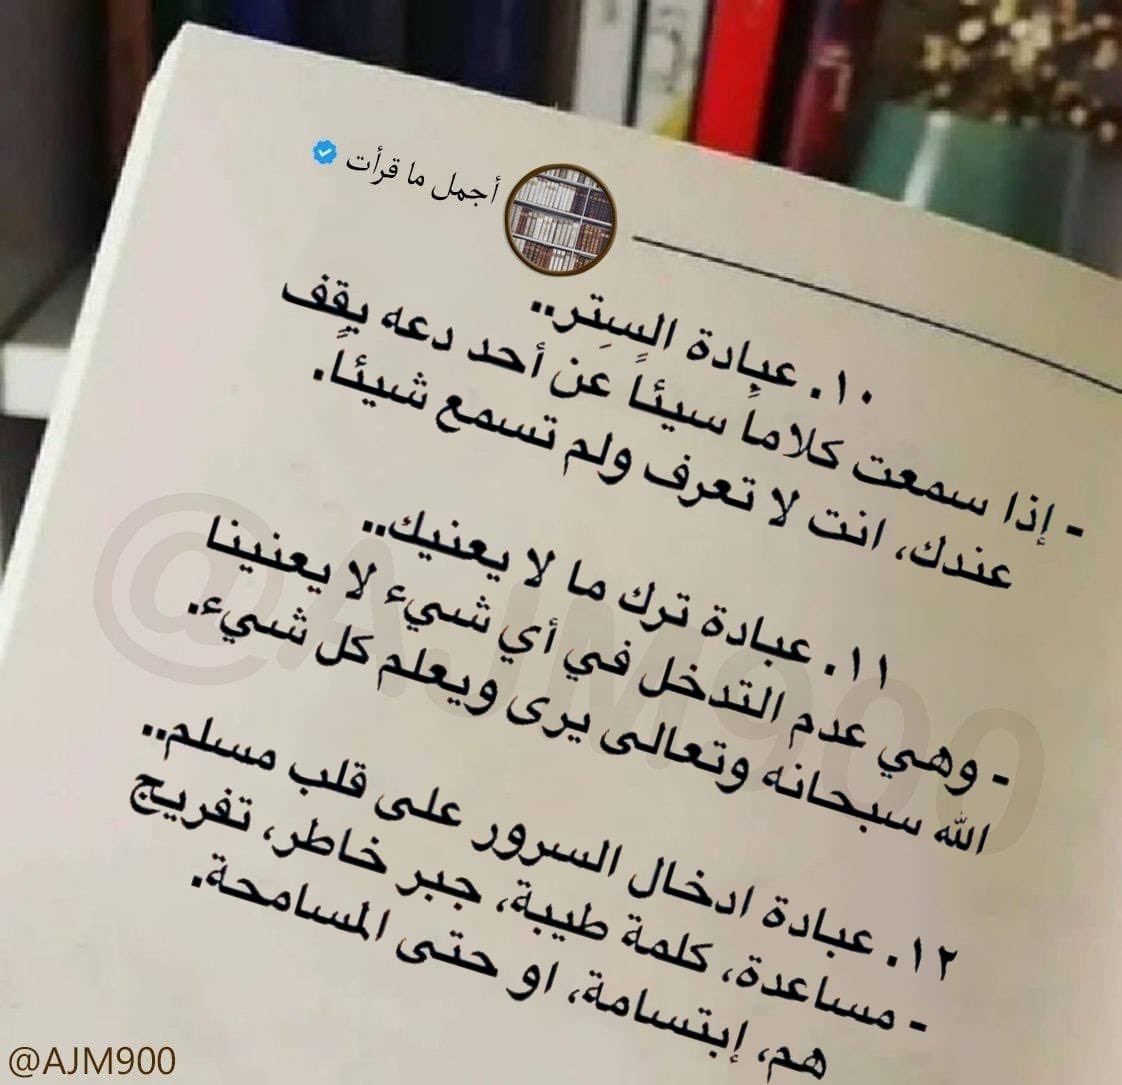 أجمل ما قرأت
١٠. عبادة الستر..
- إذا سمعت كلاماً سيئاً عن أحد دعه يقف
عندك، انت لا تعرف ولم تسمع شيئاً.
١١. عبادة ترك ما لا يعنيك..
- وهي عدم التدخل في أي شيء لا يعنينا
الله سبحانه وتعالى يرى ويعلم كل شيء.
١٢. عبادة ادخال السرور على قلب مسلم..
- مساعدة، كلمة طيبة، جبر خاطر، تفريج
هم، إبتسامة، او حتى المسامحة.
@AJM900
@AJM900